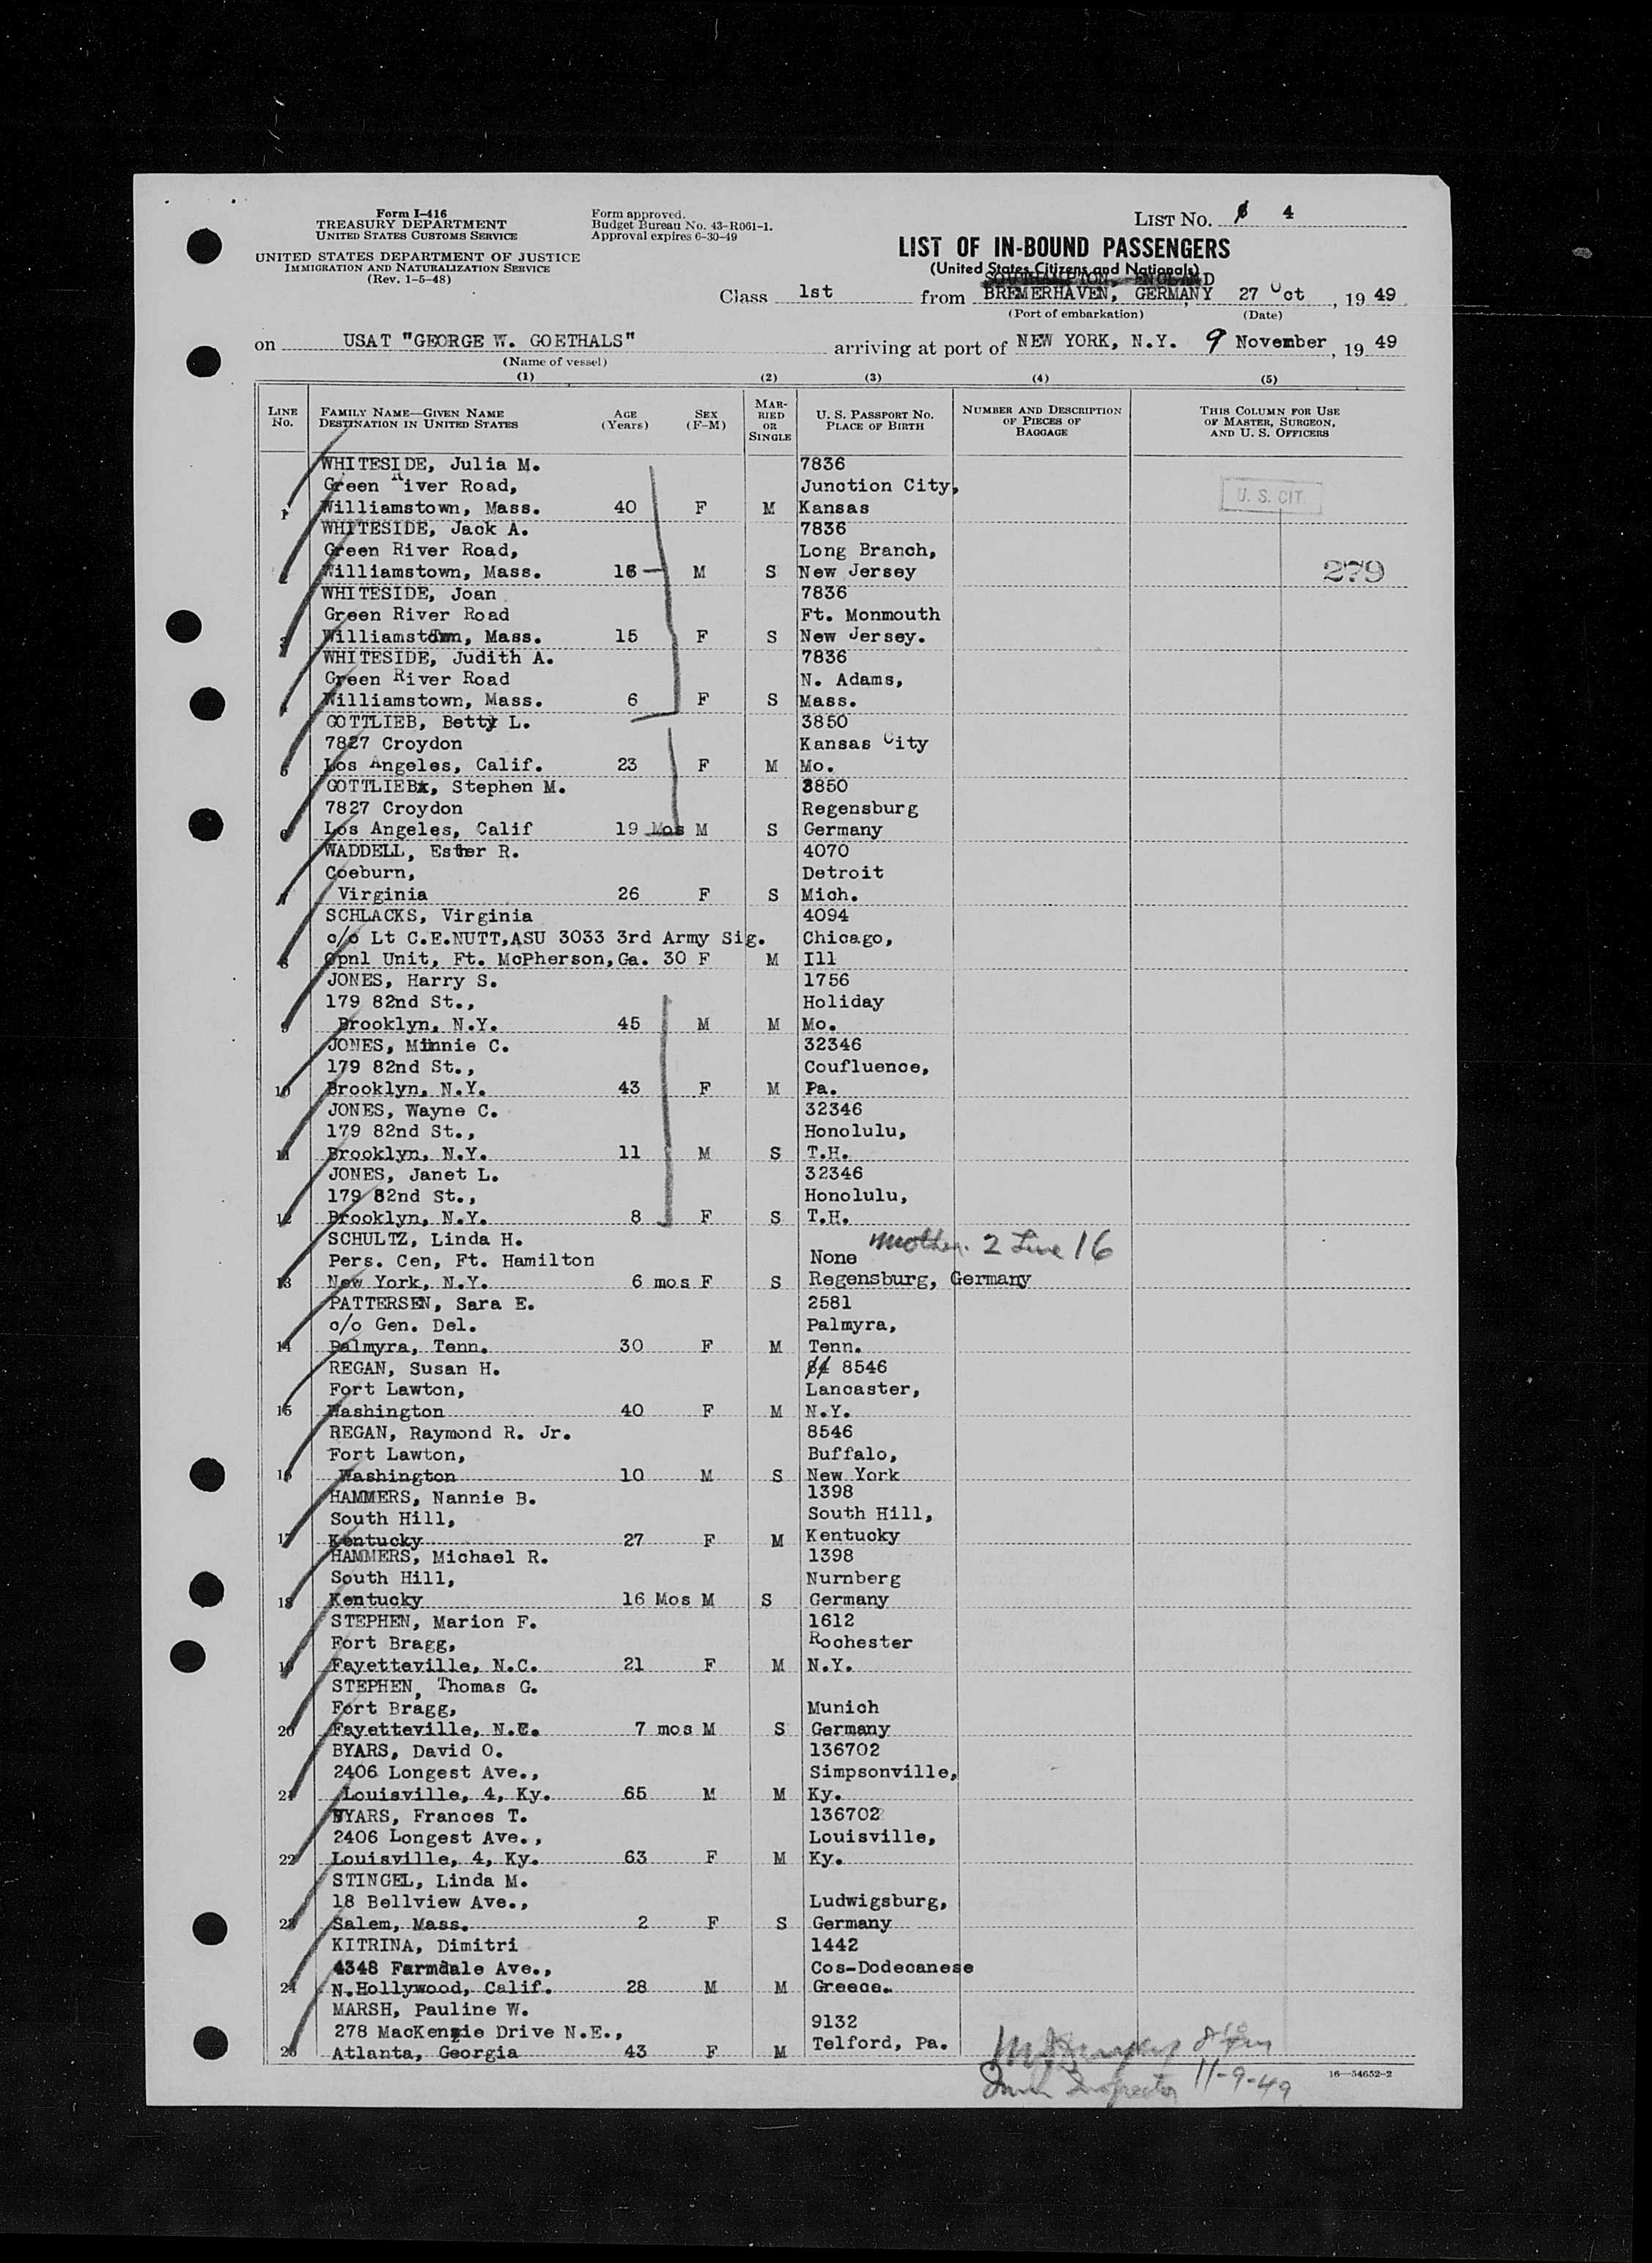 Form I-416
TREASURY DEPARTMENT
UNITED STATES CUSTOMS SERVICE
UNITED STATES DEPARTMENT OF JUSTICE
IMMIGRATION AND NATURALIZATION SERVICE
(Rev. 1-5-48)
Form approved.
Budget Bureau No. 43-R061-1.
Approval expires 6-30-49
LIST NO. 4
LIST OF IN-BOUND PASSENGERS
(United States Citizens and Nationals)
SOUTHAMPTON, ENGLAND
Class 1st from BREMERHAVEN, GERMANY, 27 Oct, 1949
(Port of embarkation) (Date)
on USAT "GEORGE W. GOETHALS" arriving at port of NEW YORK, N.Y. 9 November, 1949
(Name of vessel)
(1) (2) (3) (4) (5)
LINE No. FAMILY NAME—GIVEN NAME DESTINATION IN UNITED STATES AGE (Years) SEX (F-M) MARRIED OR SINGLE U. S. PASSPORT NO. PLACE OF BIRTH NUMBER AND DESCRIPTION OF PIECES OF BAGGAGE THIS COLUMN FOR USE OF MASTER, SURGEON, AND U. S. OFFICERS
WHITESIDE, Julia M. 7836
Green River Road, Junction City,
1 Williamstown, Mass. 40 F M Kansas U. S. CIT.
WHITESIDE, Jack A. 7836
Green River Road, Long Branch,
2 Williamstown, Mass. 16 M S New Jersey 279
WHITESIDE, Joan 7836
Green River Road Ft. Monmouth
3 Williamstown, Mass. 15 F S New Jersey.
WHITESIDE, Judith A. 7836
Green River Road N. Adams,
4 Williamstown, Mass. 6 F S Mass.
GOTTLIEB, Betty L. 3850
7827 Croydon Kansas City
5 Los Angeles, Calif. 23 F M Mo.
GOTTLIEB, Stephen M. 3850
7827 Croydon Regensburg
6 Los Angeles, Calif 19 Mos M S Germany
WADDELL, Esther R. 4070
Coeburn, Detroit
7 Virginia 26 F S Mich.
SCHLACKS, Virginia 4094
c/o Lt C.E.NUTT,ASU 3033 3rd Army Sig. Chicago,
8 Opnl Unit, Ft. McPherson,Ga. 30 F M Ill
JONES, Harry S. 1756
179 82nd St., Holiday
9 Brooklyn, N.Y. 45 M M Mo.
JONES, Minnie C. 32346
179 82nd St., Coufluence,
10 Brooklyn, N.Y. 43 F M Pa.
JONES, Wayne C. 32346
179 82nd St., Honolulu,
11 Brooklyn, N.Y. 11 M S T.H.
JONES, Janet L. 32346
179 82nd St., Honolulu,
12 Brooklyn, N.Y. 8 F S T.H.
SCHULTZ, Linda H. Mother. 2 Line 16
Pers. Cen, Ft. Hamilton None
13 New York, N.Y. 6 mos F S Regensburg, Germany
PATTERSEN, Sara E. 2581
c/o Gen. Del. Palmyra,
14 Palmyra, Tenn. 30 F M Tenn.
REGAN, Susan H. 8546
Fort Lawton, Lancaster,
15 Washington 40 F M N.Y.
REGAN, Raymond R. Jr. 8546
Fort Lawton, Buffalo,
16 Washington 10 M S New York
HAMMERS, Nannie B. 1398
South Hill, South Hill,
17 Kentucky 27 F M Kentucky
HAMMERS, Michael R. 1398
South Hill, Nurnberg
18 Kentucky 16 Mos M S Germany
STEPHEN, Marion F. 1612
Fort Bragg, Rochester
19 Fayetteville, N.C. 21 F M N.Y.
STEPHEN, Thomas G.
Fort Bragg, Munich
20 Fayetteville, N.C. 7 mos M S Germany
BYARS, David O. 136702
2406 Longest Ave., Simpsonville,
21 Louisville, 4, Ky. 65 M M Ky.
BYARS, Frances T. 136702
2406 Longest Ave., Louisville,
22 Louisville, 4, Ky. 63 F M Ky.
STINGEL, Linda M.
18 Bellview Ave., Ludwigsburg,
23 Salem, Mass. 2 F S Germany
KITRINA, Dimitri 1442
4348 Farmdale Ave., Cos-Dodecanese
24 N.Hollywood, Calif. 28 M M Greece.
MARSH, Pauline W. 9132
278 MacKenzie Drive N.E., Telford, Pa.
25 Atlanta, Georgia 43 F M
Inspector 11-9-49
16—54652-2